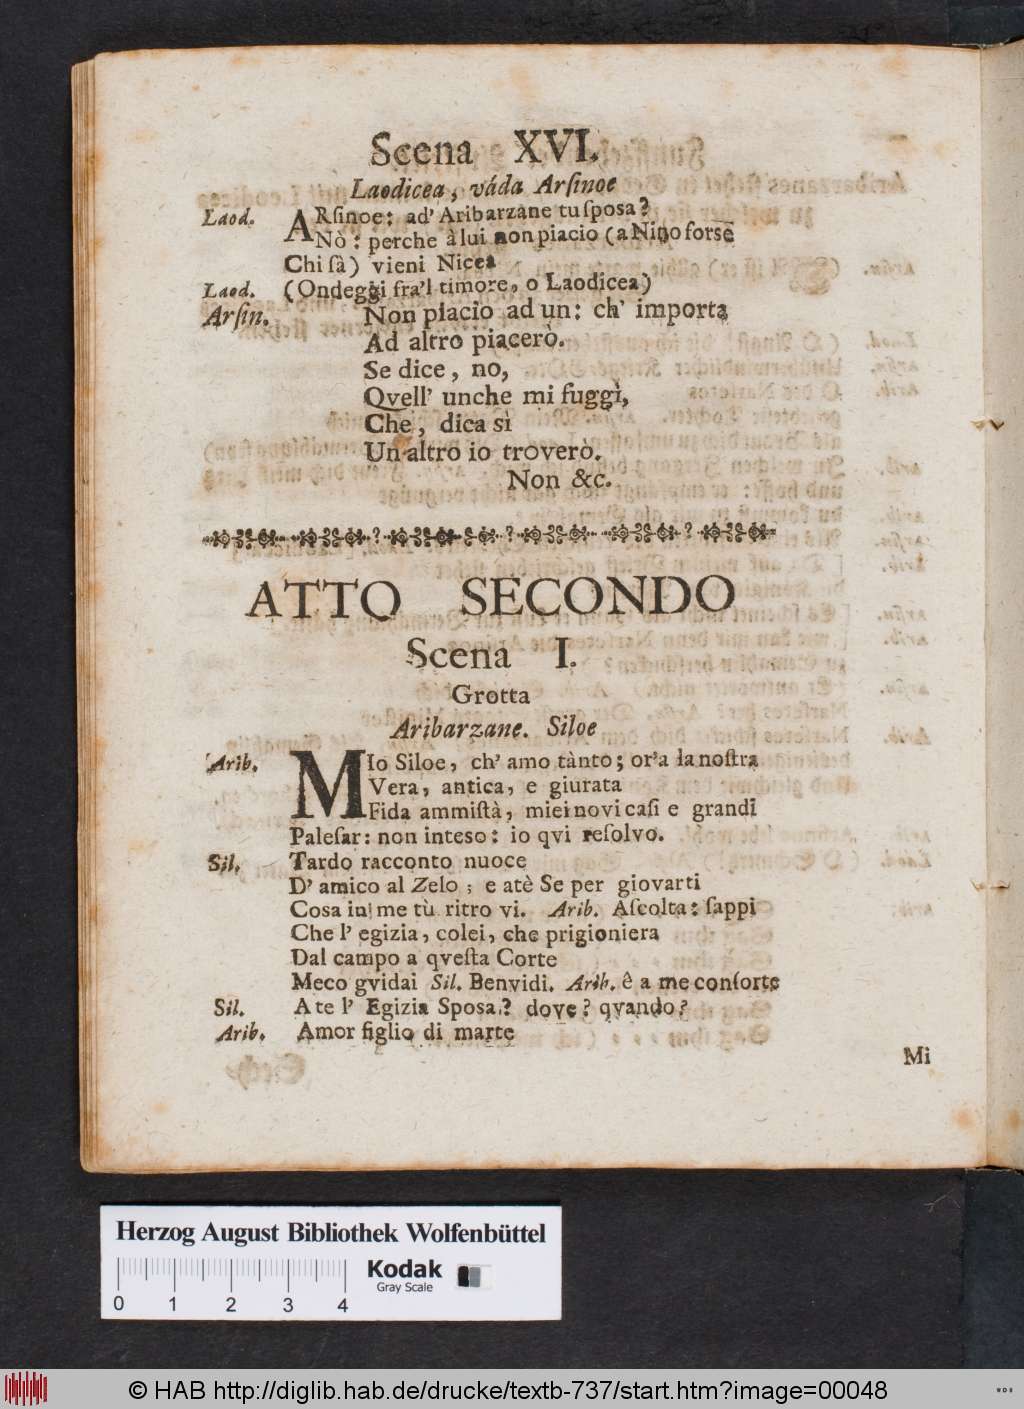 Scena XVI.
Laodicea, váda Arſinoe
Laod. ARſinoe: ad' Aribarzane tu ſposa?
Nò: perche à lui non piacio (a Nino forse
Chi ſà) vieni Nicea
Laod. (Ondeggi fra'l timore, o Laodicea)
Arſin. Non piacio ad un: ch' importa
Ad altro piacerò.
Se dice, no,
Qvell' unche mi fuggì,
Che, dica sì
Un altro io troverò.
Non &c.
ATTO SECONDO
Scena I.
Grotta
Aribarzane. Siloe
Arib. MIo Siloe, ch' amo tànto; or'a la noſtra
Vera, antica, e giurata
Fida ammiſtà, miei novi caſi e grandi
Paleſar: non inteso: io qvi reſolvo.
Sil. Tardo racconto nuoce
D' amico al Zelo; e atè Se per giovarti
Cosa in me tù ritro vi. Arib. Aſcolta: ſappi
Che l' egizia, colei, che prigioniera
Dal campo a qveſta Corte
Meco gvidai Sil. Benvidi. Arib. ê a me conſorte
Sil. A te l' Egizia Sposa? dove? qvando?
Arib. Amor figlio di marte
Mi
Herzog August Bibliothek Wolfenbüttel
0 1 2 3 4
Kodak
Gray Scale
© HAB http://diglib.hab.de/drucke/textb-737/start.htm?image=00048